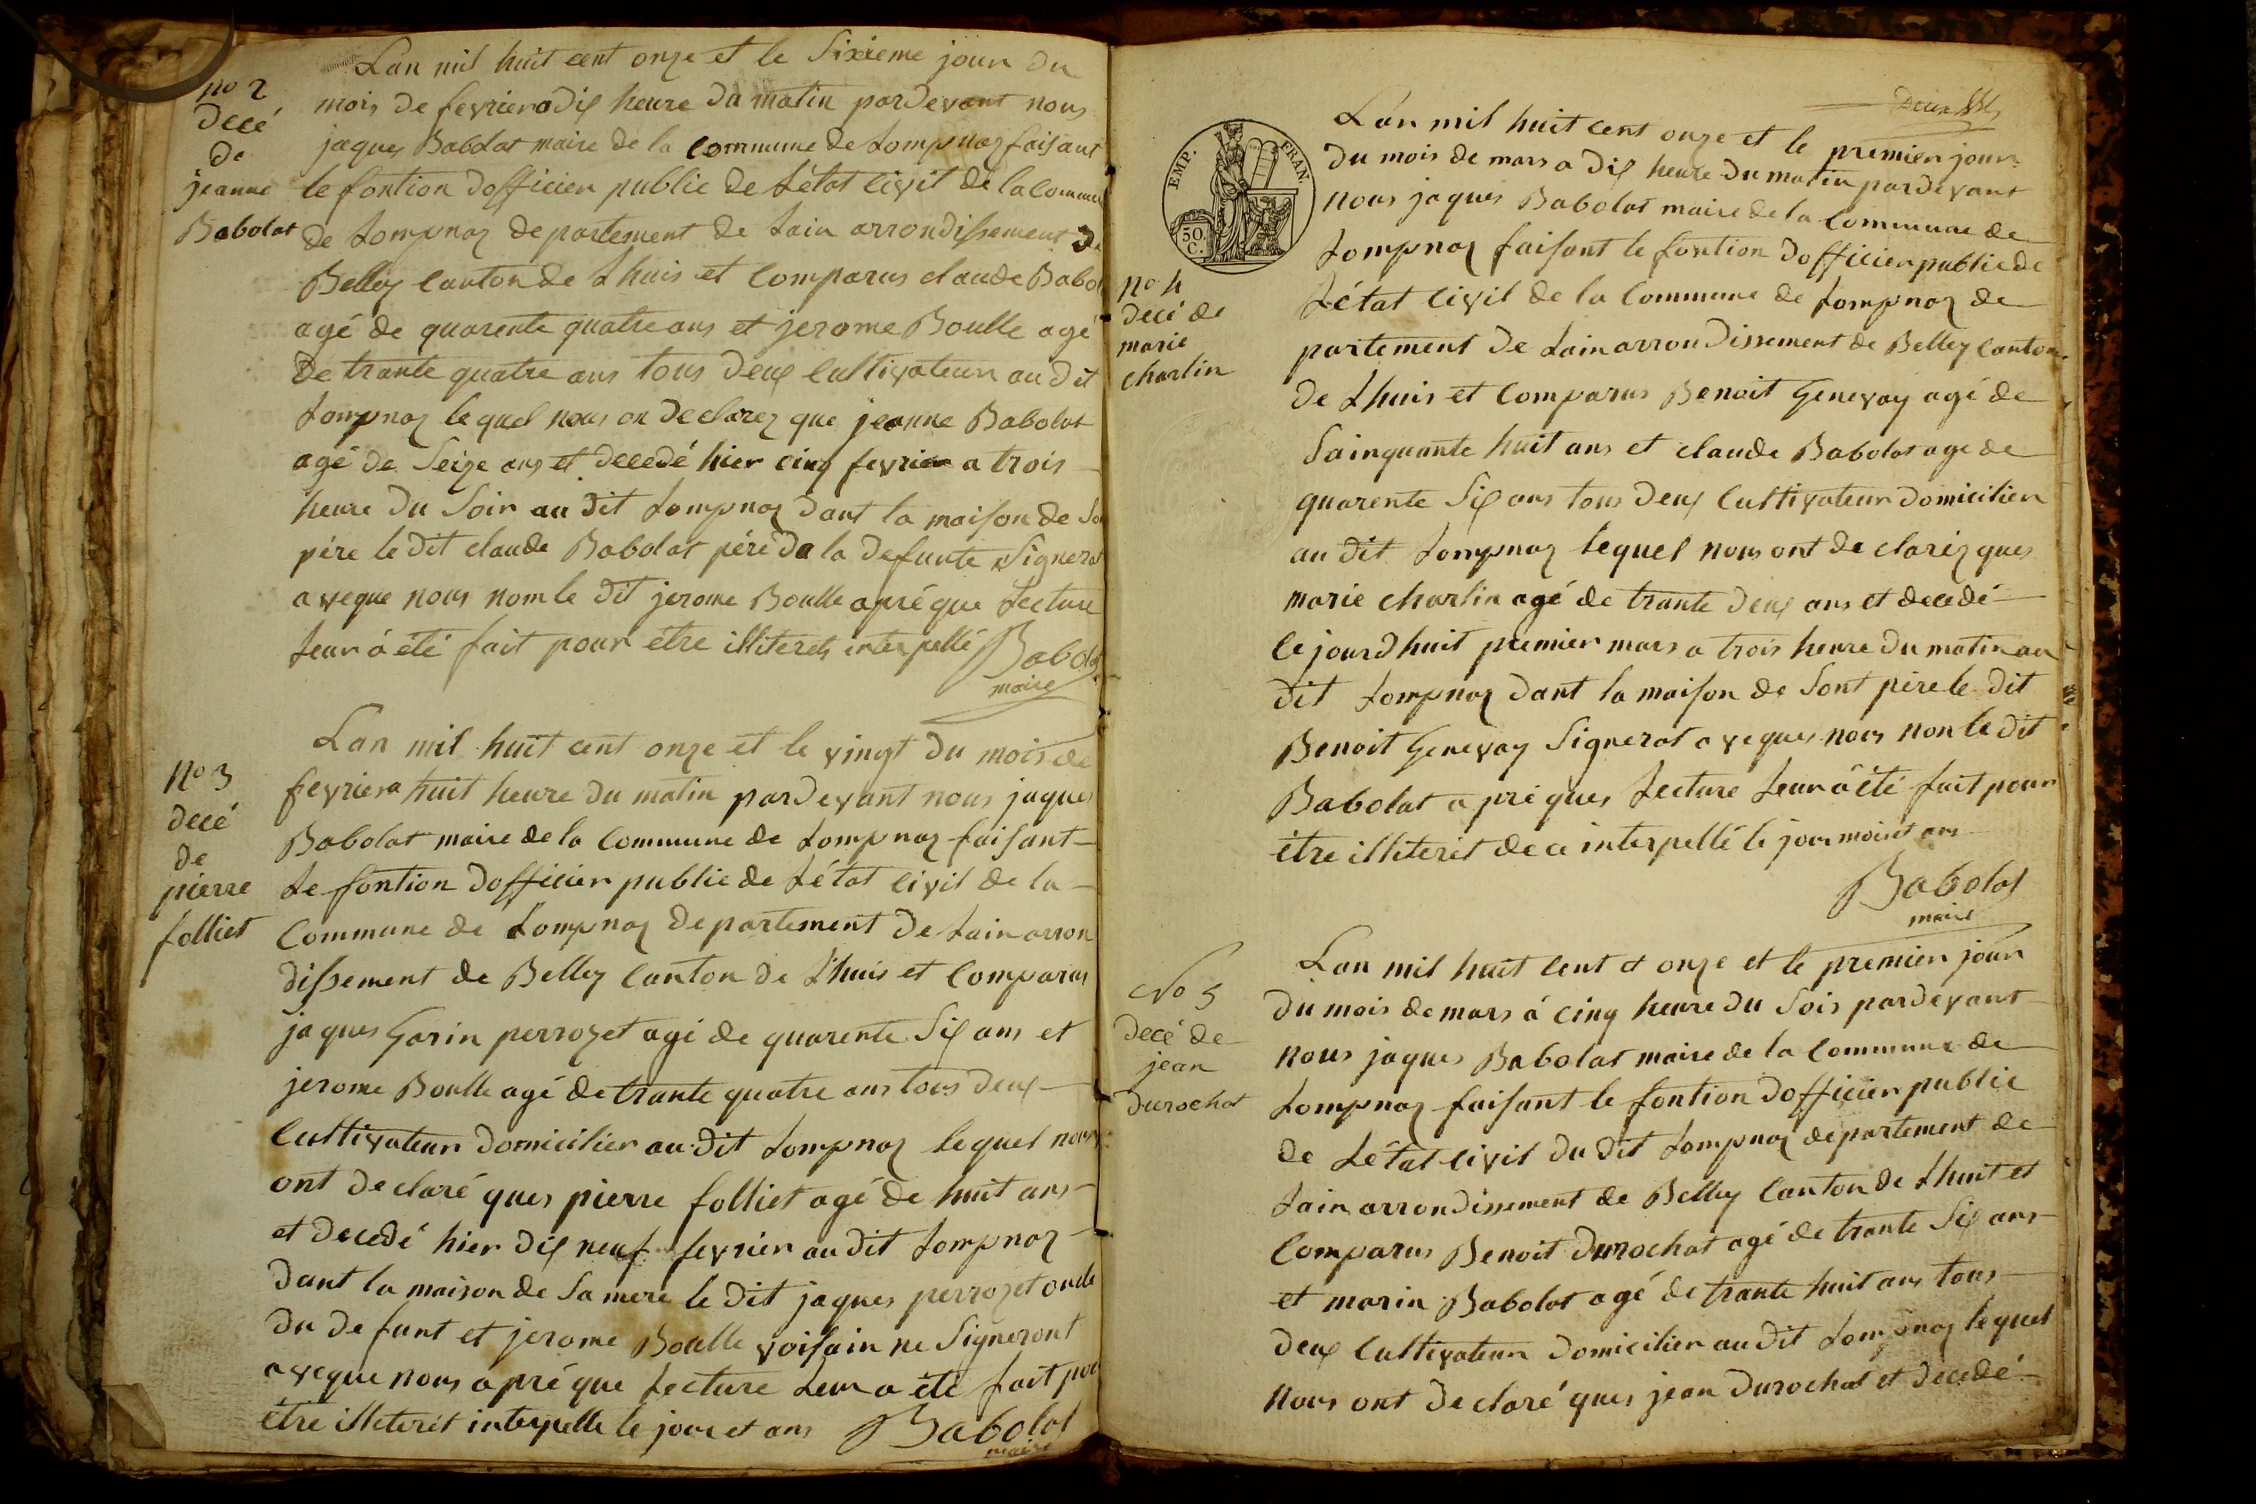 Lan mil huit cent onze et le Sixieme jour du
no 2
mois de fevrier a dix heure du matin pardevant nous
Decé
jaques Babolat maire de la commune de Lompnaz faisant
de
jeanne
le fontion dofficier public de Létat civil de la Commune
Babolat
de Lompnaz departement de Lain arrondissement de
Belley Canton de Lhuis et Comparus claude Babol
agé de quarente quatre ans et jerome Boulle agé
de trante quatre ans tous deux Cultivateur au dit
Lompnaz lequel nous on declarez que jeanne Babolat
agé de Seize ans et decedé hier cinq fevrier a trois
heure du Soir au dit Lompnaz dant la maison de So
pére le dit claude Babolat pére de la defunte Signerat
aveque nous nom le dit jerome Boulle apré que Lecture
Leur à été fait pour étre illiteret interpellé Babolat
maire
Lan mil huit cent onze et le vingt du mois de
no 3
fevrier a huit heure du matin pardevant nous jaques
decé
Babolat maire de la Commune de Lompnaz faisant
de
pierre
Le fontion dofficier public de Létat Civil de la
folliet
Commune de Lompnaz departement de Lain arron
dissement de Belley Canton de Lhuis et Comparus
jaques Garin perrozet agé de quarente Six ans et
jerome Boulle agé de trante quatre ans tous deux
Cultivateur domicilier au dit Lompnaz lequel nous
ont declaré ques pierre folliet agé de huit ans
et decedé hier dix neuf fevrier au dit Lompnaz
dant la maison de Sa mere le dit jaques perrozet oncle
du defunt et jerome Boulle voisain ne Signeront
aveque nous apré que Lecture Leur a été fait pour
étre illiterét interpelle le jour et ans Babolat
maire
Lan mil huit cent onze et le premier jour
EMP. FRAN.
50 C.
du mois de mars a dix heure du matin pardevant
nous jaques Babolat maire de la Commune de
Lompnaz faisant le fontion dofficier public de
no 4
Létat Civil de la Commune de Lompnaz de
decé de
marie
partement de Lain arrondissement de Belley Canton
charlin
de Lhuis et Comparus Benoit Genevay agé de
Sainquante huit ans et claude Babolat age de
quarente Six ans tous deux Cultivateur domicilier
au dit Lompnaz lequel nous ont declaréz ques
marie charlin agé de trante deux ans et decedé
le jourdhuit premier mars a trois heure du matin au
dit Lompnaz dant la maison de Sont pére le dit
Benoit Genevay Signerat aveques nous non le dit
Babolat apré ques Lecture Leur à été fait pour
étre illiterét de ce interpellé le jour moint ans
Babolat
maire
Lan mil huit Cent et onze et le premier jour
No 5
du mois de mars á cinq heure du Soir pardevant
decé de
nous jaques Babolat maire de la Commune de
jean
durochat
Lompnaz faisant le fontion dofficier public
de Létat Civil du dit Lompnaz departement de
Lain arrondissement de Belley Canton de Lhuit et
Comparus Benoit durochat agé de trante Six ans
et marin Babolat agé de trante huit ans tous
deux Cultivateur domicilier au dit Lompnaz lequel
nous ont declaré ques jean durochat et decedé